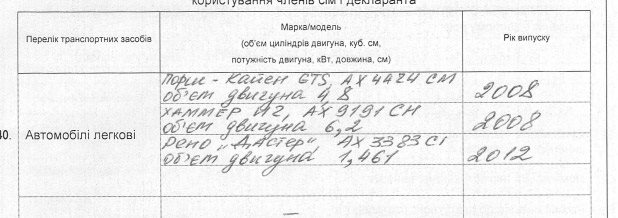 користування членів сім'ї декларанта
Перелік транспортних засобів
Марка/модель
(об'єм циліндрів двигуна, куб. см,
потужність двигуна, кВт, довжина, см)
Рік випуску
40. Автомобілі легкові
Порш - Кайен GTS, АХ 4424 СМ
об'єм двигуна 4,8
2008
ХАММЕР Н2, АХ 9191 СН
об'єм двигуна 6,2
2008
Рено „Дастер", АХ 3383 СІ
об'єм двигуна 1,461
2012
—